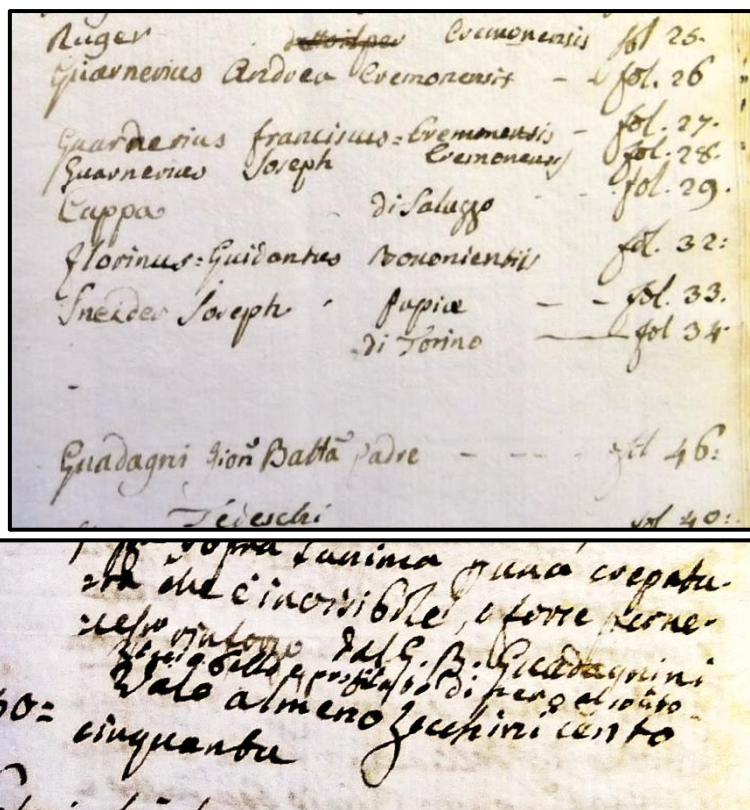 Ruger Cremonensis fol 25.
Guarnerius Andrea Cremonensis - fol. 26
Guarnerius franciscus = Cremonensis - fol. 27.
Guarnerius Joseph Cremonensis fol. 28.
Cappa di Saluzzo fol. 29.
florinus = Guidantus Bononiensis fol. 32:
Sneider Joseph Papiæ - - fol. 33.
di Torino fol 34.
Guadagni Gioñ Battã Padre - - - fol 46:
Tedeschi fol 40:
sopra l'anima crepatu-
=ra che è invisibile, o forse
dal G. B: Guadagnini
di nero
Vale almeno Zecchini cento
50=
cinquanta